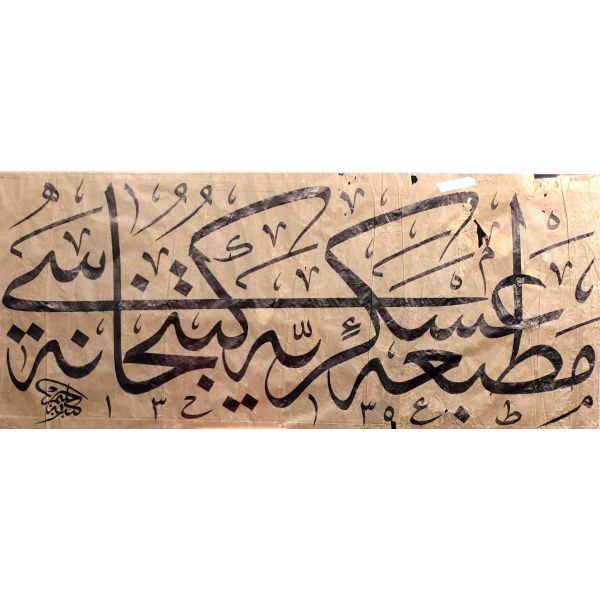 مطبعهٔ عسكريّه كتبخانه سى